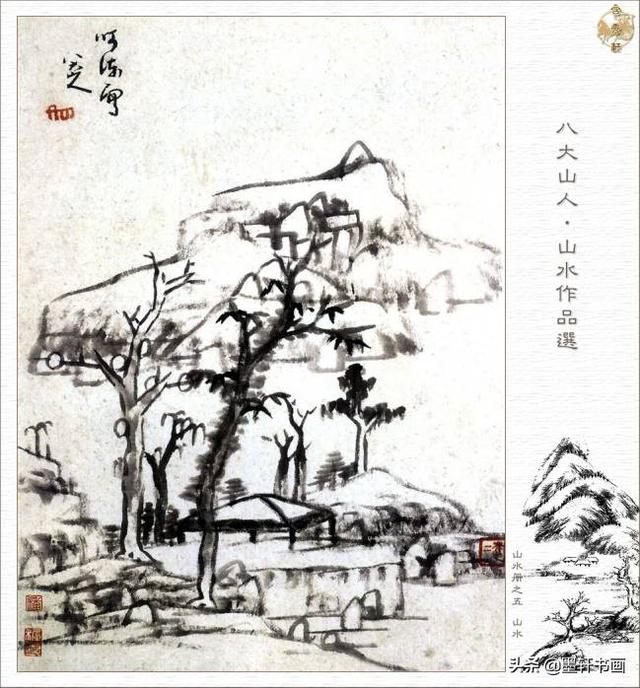 八大山人
八大山人·山水作品選
山水册之五 山水
头条 @墨轩书画